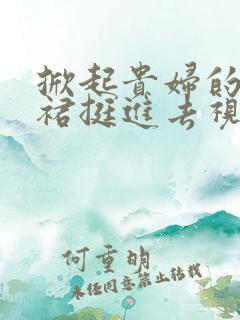 掀起貴婦的
裙挺進去視
何重明
未经同意禁止转载